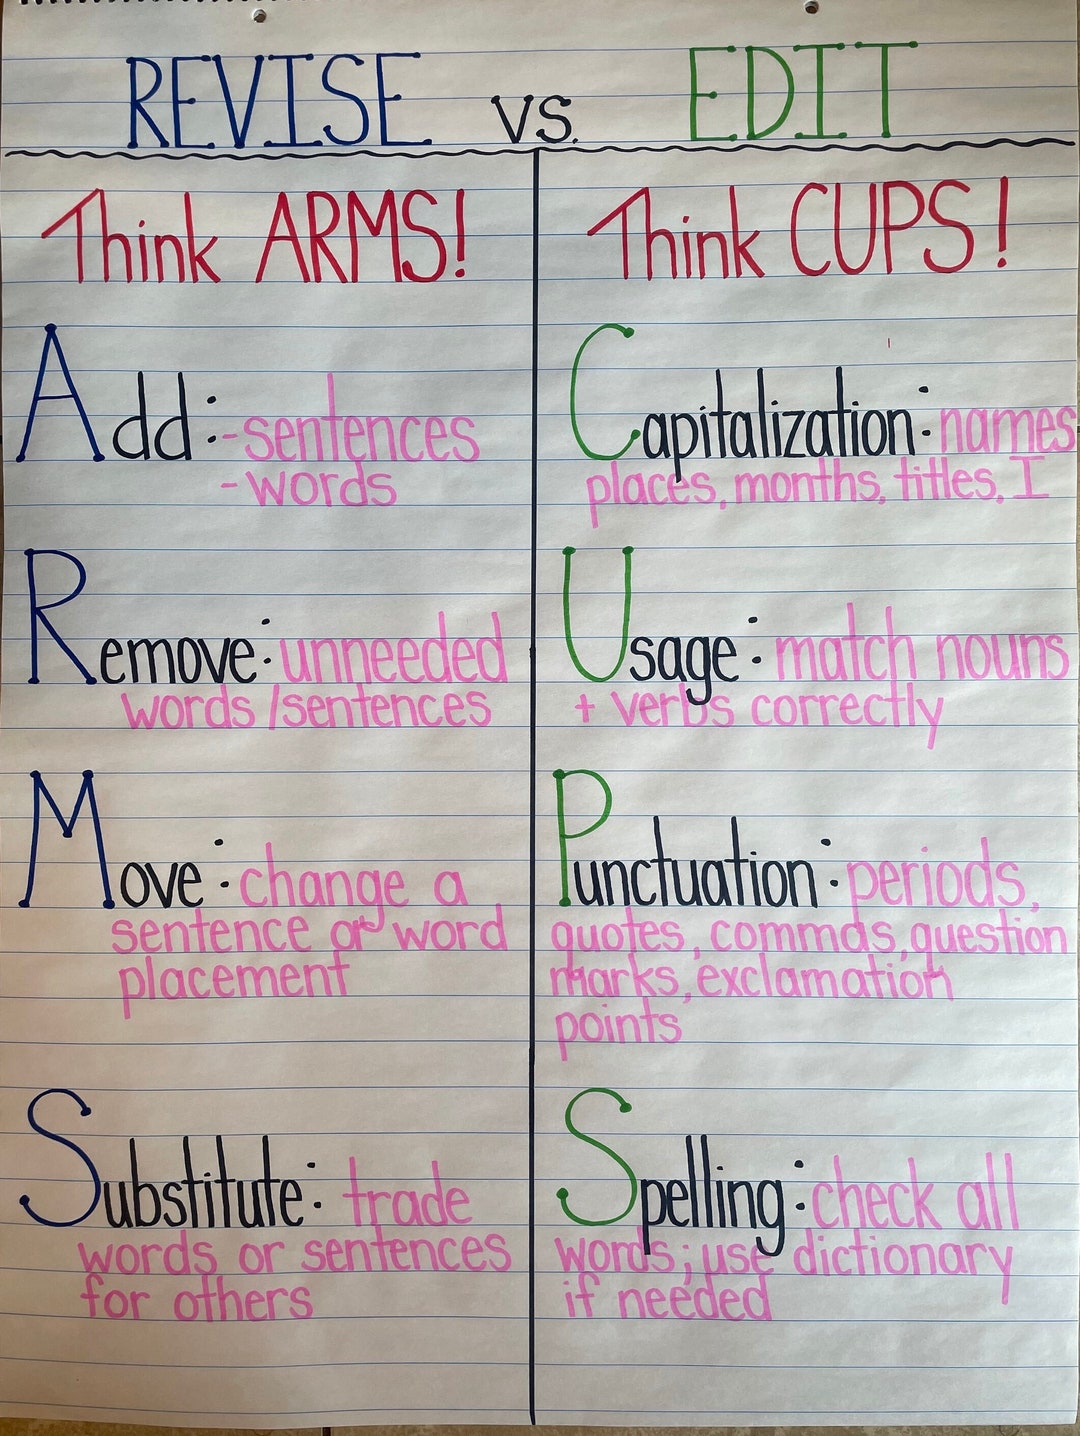 REVISE vs. EDIT
Think ARMS!
Add: -sentences
-words
Remove: unneeded
words/sentences
Move: change a
sentence or word
placement
Substitute: trade
words or sentences
for others
Think CUPS!
Capitalization: names
places, months, titles, I
Usage: match nouns
+ verbs correctly
Punctuation: periods,
quotes, commas, question
marks, exclamation
points
Spelling: check all
words; use dictionary
if needed